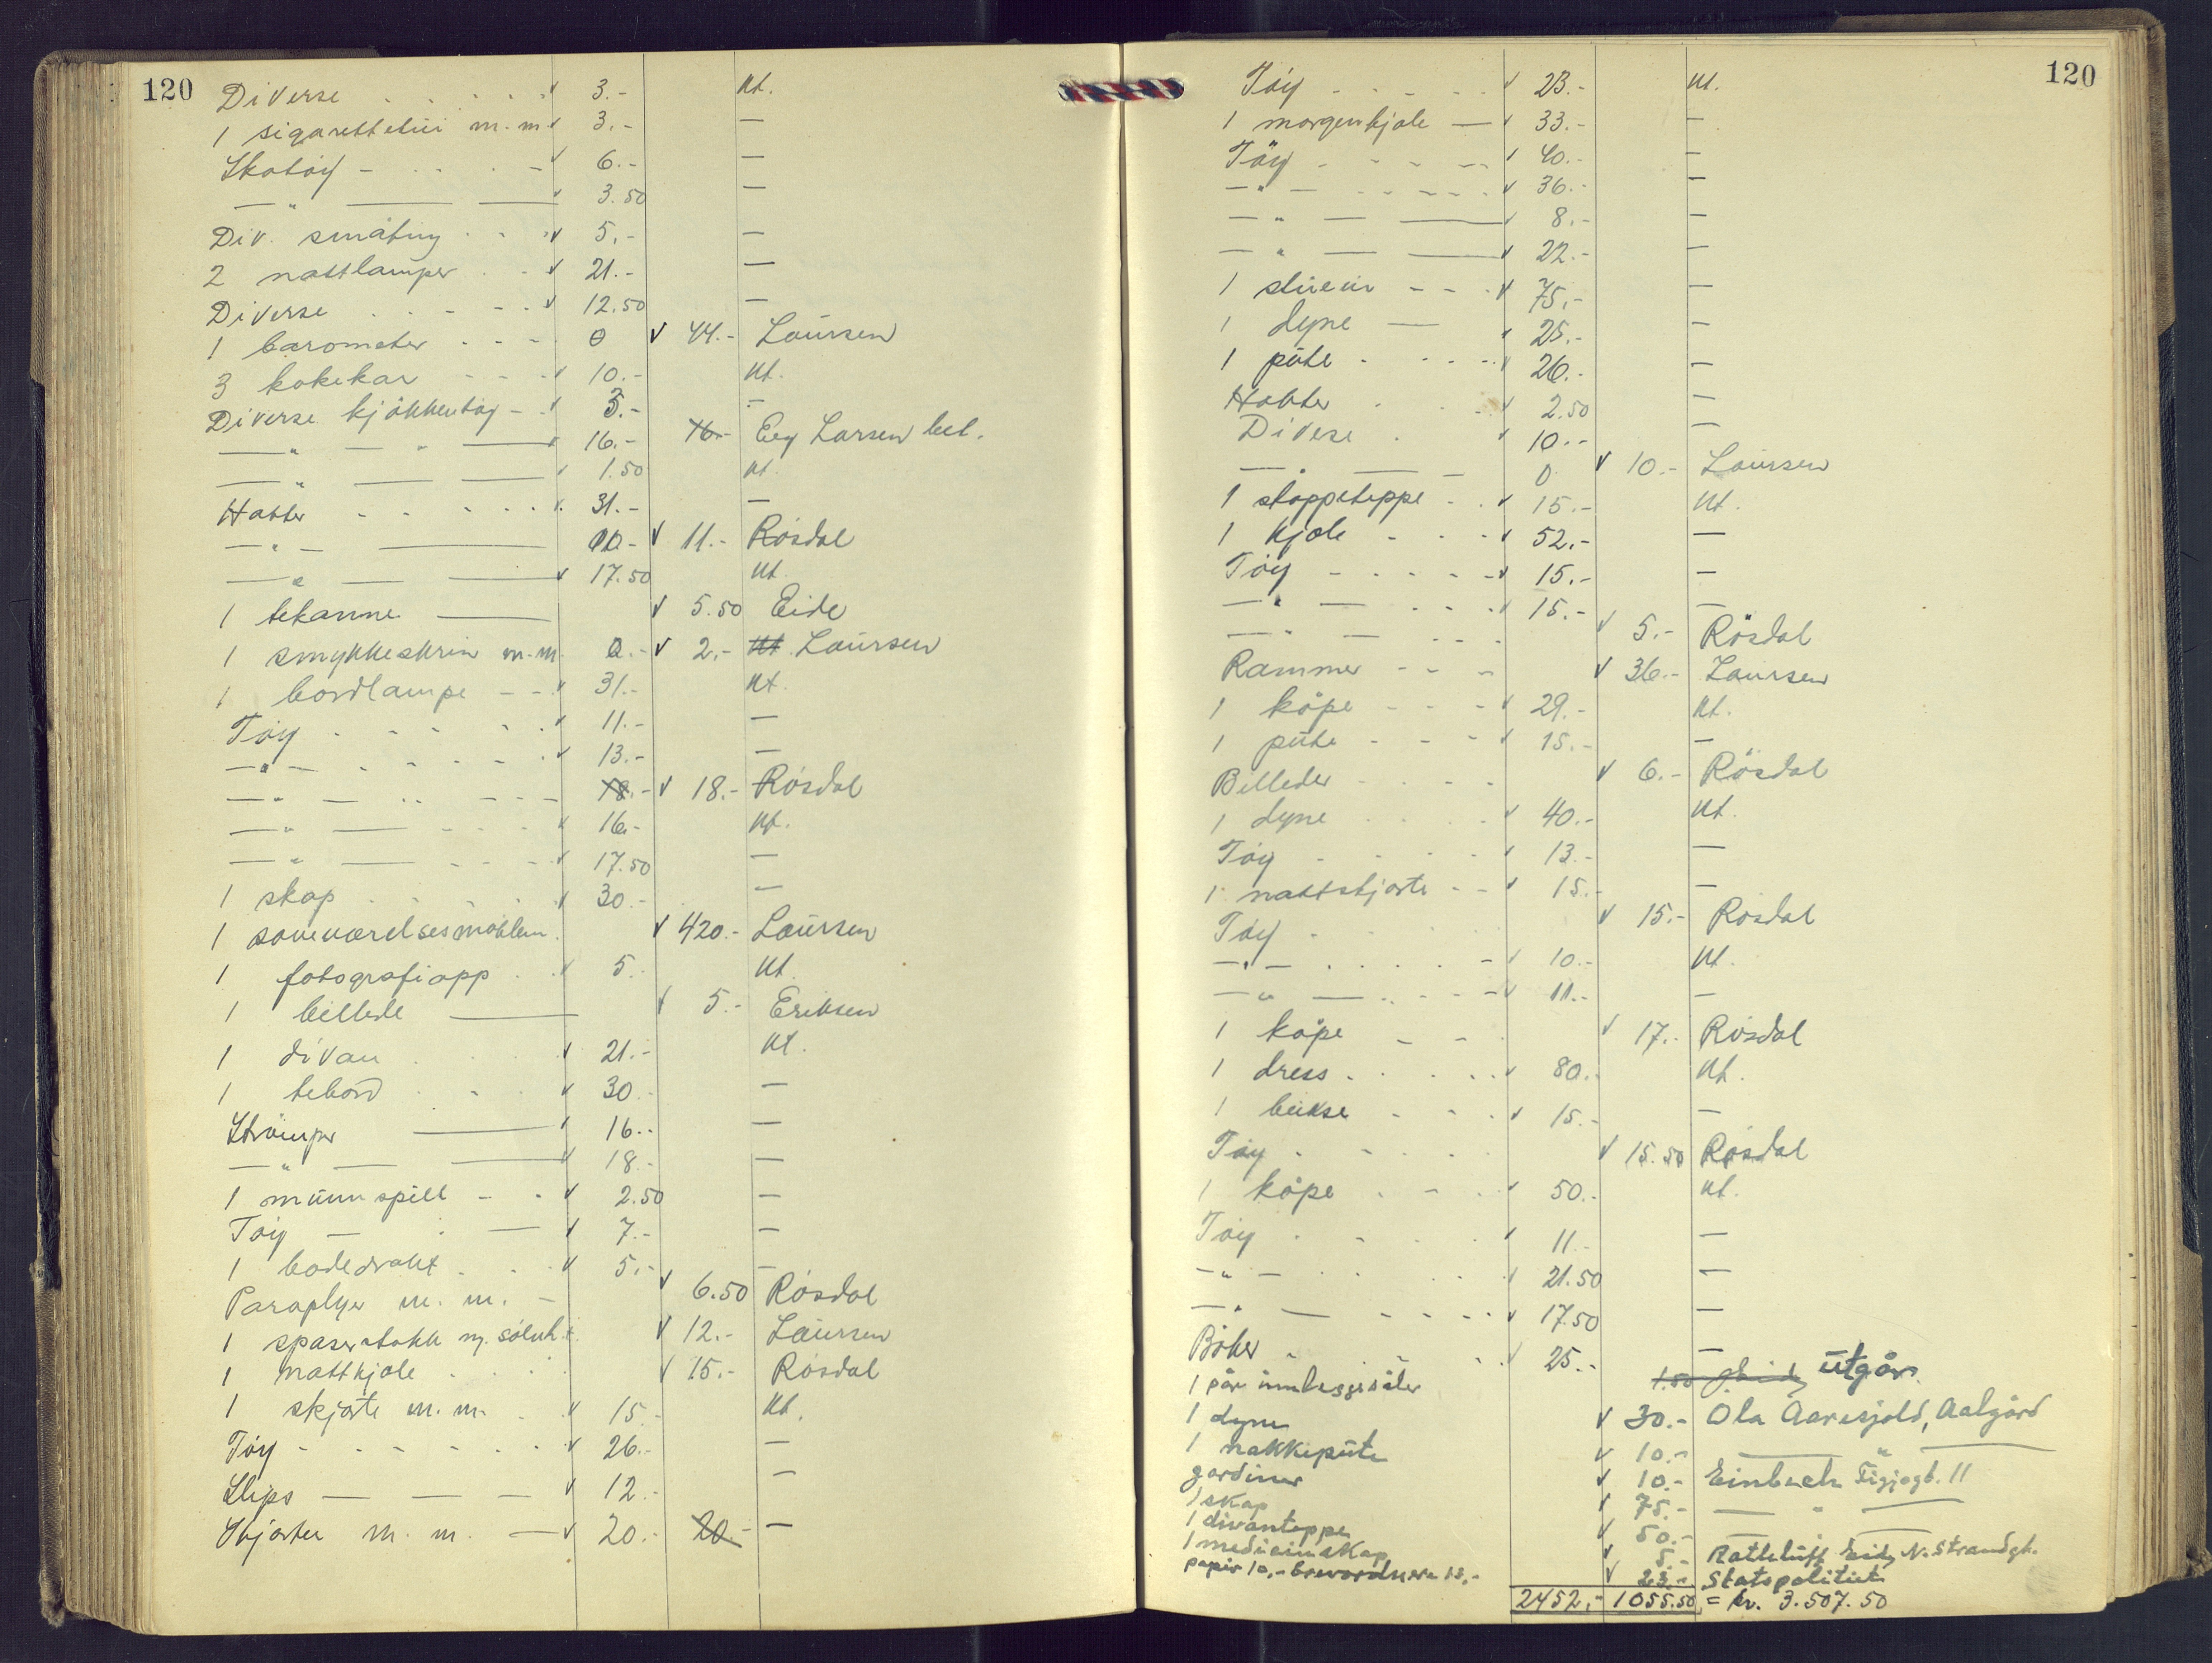 120
Diverse . . . . . v 3.- Kt.
1 sigarettetui m.m v 3.- —
Skotøy - . . . - v 6.- —
— " — — v 3.50 —
Div. småting . . v 5.- —
2 nattlamper . . v 21.- —
Diverse . . . - . v 12.50 —
1 barometer - - - 0 v 44.- Laursen
3 kokekar - - - v 10.- Kt.
Diverse kjøkkentøy - v 5.- —
— " — " — v 16.- 16.- Laursen bet.
— " — — v 1.50 Kt.
Hatter . . . . . v 31.- —
— " — — v 11.- Røsdal
— " — — v 17.50 Kt.
1 tekanne — v 5.50 Eide
1 smykkeskrin m.m. 0.- v 2.- Kt. Laursen
1 bordlampe - - v 31.- Kt.
Tøy . - . . . v 11.- —
— " — . . . . v 13.- —
— " — . . - - - 18.- v 18.- Røsdal
— " — - - - v 16.- Kt.
— " — - - - v 17.50 —
1 skap . . . . v 30.- —
1 soveværelsesmøblem. v 420.- Laursen
1 fotografiapp . . v 5.- Kt.
1 billede — v 5.- Eriksen
1 divan . . . v 21.- Kt.
1 tebord . . . v 30.- —
Strømper — v 16.- —
— " — — v 18.- —
1 munnspill - . v 2.50 —
Tøy — . — v 7.- —
1 badedrakt . . . v 5.- —
Paraplyer m. m. - v 6.50 Røsdal
1 spaserstokk m. sølvh. v 12.- Laursen
1 nattkjole . . . . v 15.- Røsdal
1 skjorte m. m. . v 15.- Kt.
Tøy - - - - - . v 26.- —
Slips — — — v 12.- —
Skjorter m. m. — v 20.- 20.- —
120
Tøy - - - - . v 23.- Kt.
1 morgenkjole — v 33.- —
Tøy - - - - v 40.- —
— " — - - - - v 36.- —
— " — — v 8.- —
— " — — v 22.- —
1 stueur - - . v 75.- —
1 dyne — v 25.- —
1 pute . . . . v 26.- —
Hatter . . . v 2.50 —
Diverse . . v 10.- —
— " — — 0 v 10.- Laursen
1 stoppeteppe . . v 15.- Kt.
1 kjole - - - v 52.- —
Tøy - - - - - v 15.- —
— " — . . . . v 15.- —
— " — - - - v 5.- Røsdal
Rammer - - - v 36.- Laursen
1 kåpe - - - v 29.- Kt.
1 pute - - - v 15.- —
Billeder - - - - v 6.- Røsdal
1 dyne . . . . v 40.- Kt.
Tøy - - - - v 13.- —
1 nattskjorte - - v 15.- —
Tøy - . . . v 15.- Røsdal
— " — . . . . - v 10.- Kt.
— " — . . - - - v 11.- —
1 kåpe - - v 17.- Røsdal
1 dress . . . . . v 80.- Kt.
1 bukse - - - v 15.- —
Tøy - - - - . v 15.50 Røsdal
1 kåpe . - . v 50.- Kt.
Tøy . . - . . v 11.- —
— " — . . . . v 21.50 —
— " — - - - - v 17.50 —
Bøker - . . . v 25.- —
1 par innleggsåler 1.50 utgår
1 dyne v 30.- Ola Aaresjold, Aalgård
1 nakkepute v 10.- — " —
gardiner v 10.- Einbuch 11
1 skap v 75.- — " —
1 divanteppe v 50.- —
1 medicinskap v 5.- Eide N. Strandgt.
papir 10,- brevordnere 13,- v 23.- Statspolitiet
2452,- 1055.50 = kr. 3.507.50